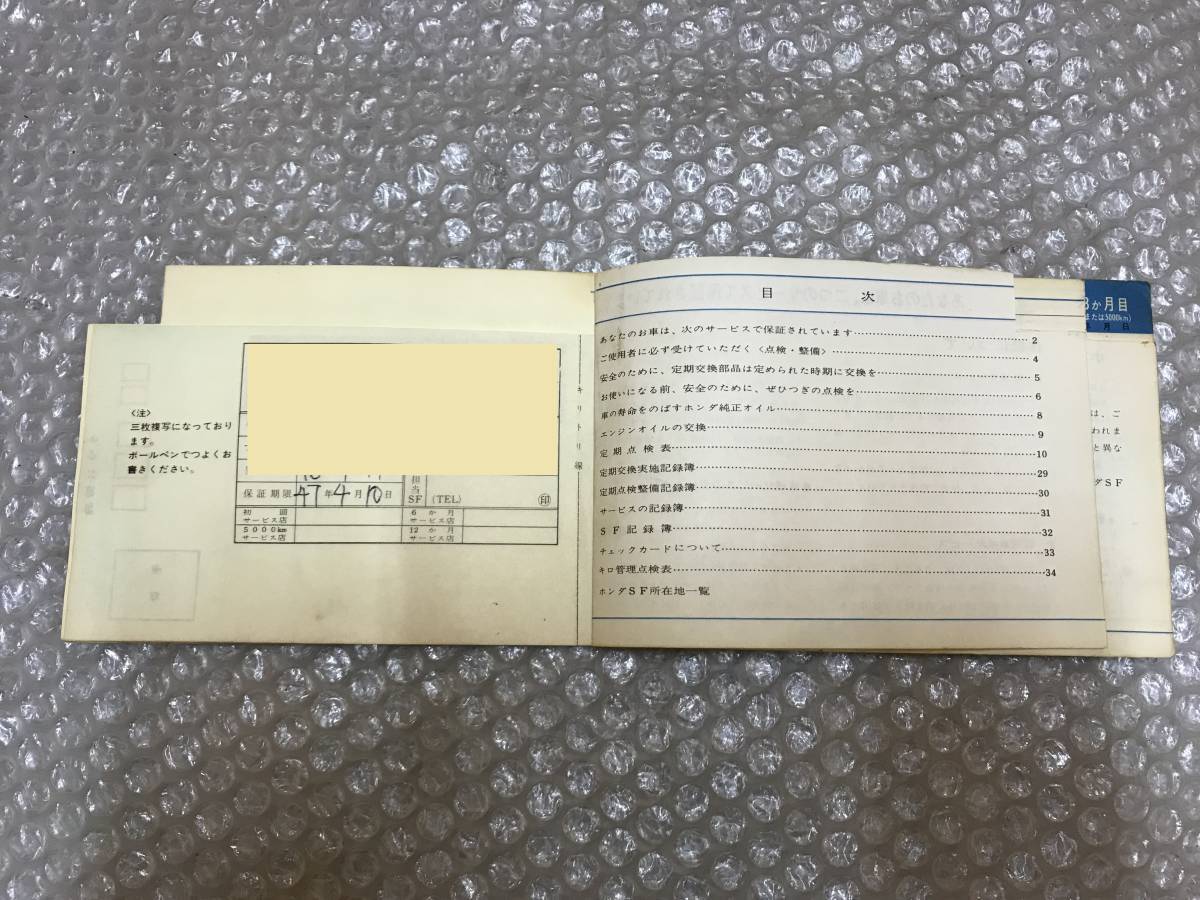 〈注〉
三枚複写になっており
ます。
ボールペンでつよくお
書きください。
保証期限 47年4月10日
担当SF (TEL) 印
初回サービス店 6か月サービス店
5000kmサービス店 12か月サービス店
キリトリ線
目次
あなたのお車は、次のサービスで保証されています……2
ご使用者に必ず受けていただく〈点検・整備〉……4
安全のために、定期交換部品は定められた時期に交換を……5
お使いになる前、安全のために、ぜひつぎの点検を……6
車の寿命をのばすホンダ純正オイル……8
エンジンオイルの交換……9
定期点検表……10
定期交換実施記録簿……29
定期点検整備記録簿……30
サービスの記録簿……31
SF記録簿……32
チェックカードについて……33
キロ管理点検表……34
ホンダSF所在地一覧
か月目
または5000km)
月 日
は、ご
われま
と異な
ダSF